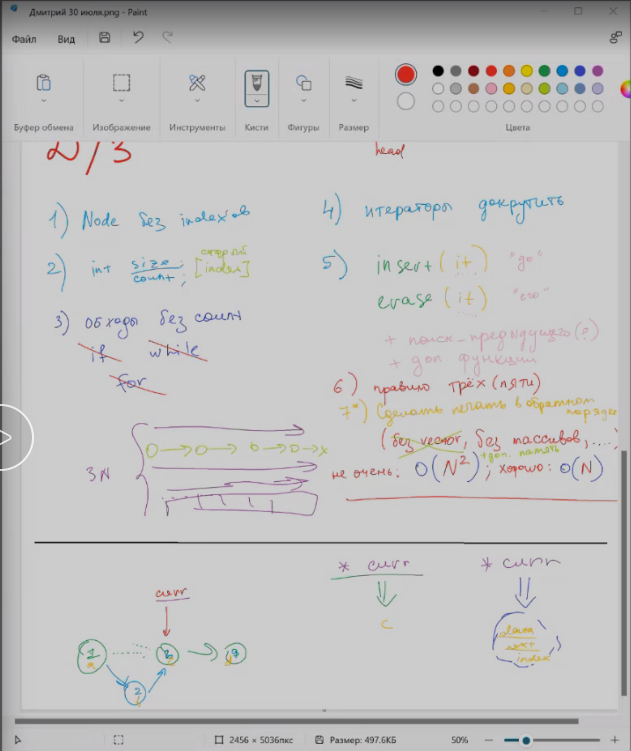 Дмитрий 30 июля.png - Paint
Файл Вид
Буфер обмена Изображение Инструменты Кисти Фигуры Размер Цвета
head
1) Node без index'ов
2) int size; [index]
count;
3) обходы без count
if while
for
3N
4) итераторы докрутить
5) insert (it) "до"
erase (it) "его"
+ поиск_предыдущего(?)
+ доп. функции
6) правило трёх (пяти)
7*) Сделать печать в обратном
порядке
(без vector, без массивов, ....)
+доп. память
не очень: O(N²); хорошо: O(N)
* curr * curr
curr
c
data
next
index
2456 × 5036пкс Размер: 497.6КБ 50%